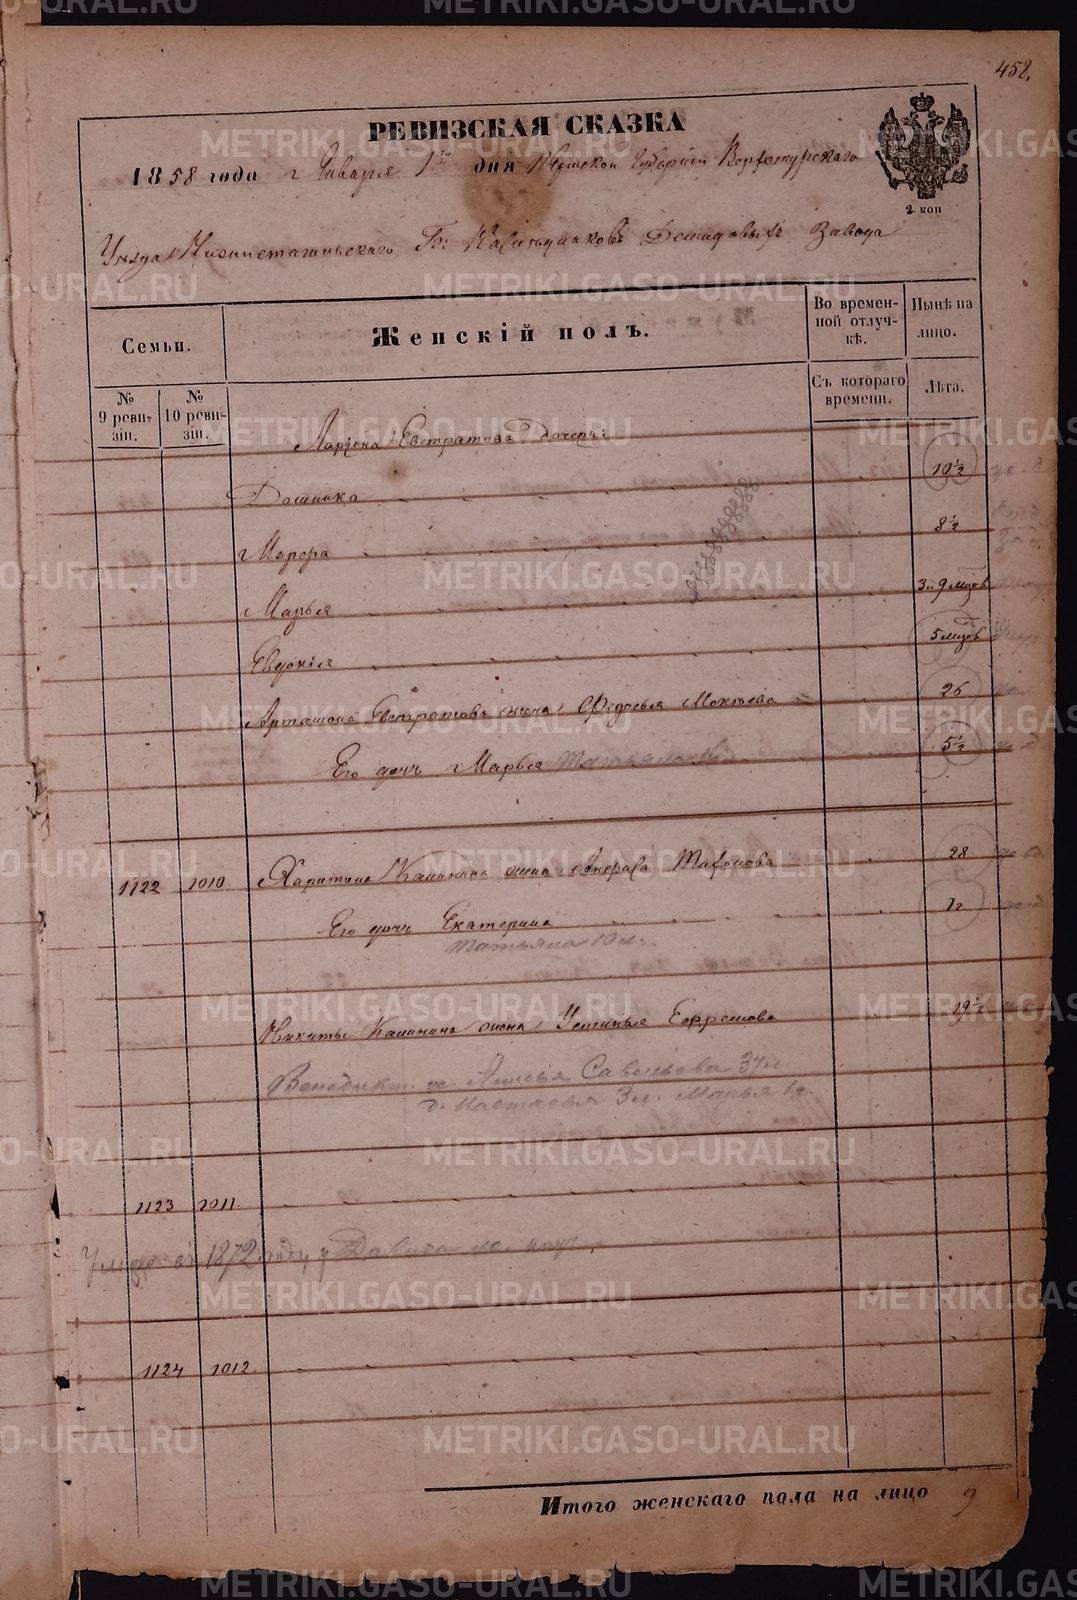 452.
РЕВИЗСКАЯ СКАЗКА
1858 года Января 1го дня Пермской Губернии Верхотурскаго
2 коп
Уезда Нижнетагильскаго Гг. Наследниковъ Демидовыхъ Завода
Семьи.
Женскій полъ.
Во временной отлучкѣ.
Нынѣ на лицо.
№ 9 ревизіи.
№ 10 ревизіи.
Съ котораго времени.
Лѣта.
Лариона Евстратова дочери:
Домника 10½
Марфа 8½
Марья 3 и 9 мцовъ
Евдокія 5 мцовъ
Артамона Евстратова жена Федосья Мокиева 26
Его дочь Марья 5½
1122 1010 Харитона Калинина жена Тафомова 28
Его дочь Екатерина 1г
Татьяна 10 л.
Никиты Калинина жена Устинья Ефремова 19½
Венедикт. ж. Анисья Савельева 37 л.
д. Настасья 3 л. Марья 1 г.
1123 1011
в 1872 году у Давида
1124 1012
Итого женскаго пола на лицо 9
METRIKI.GASO-URAL.RU